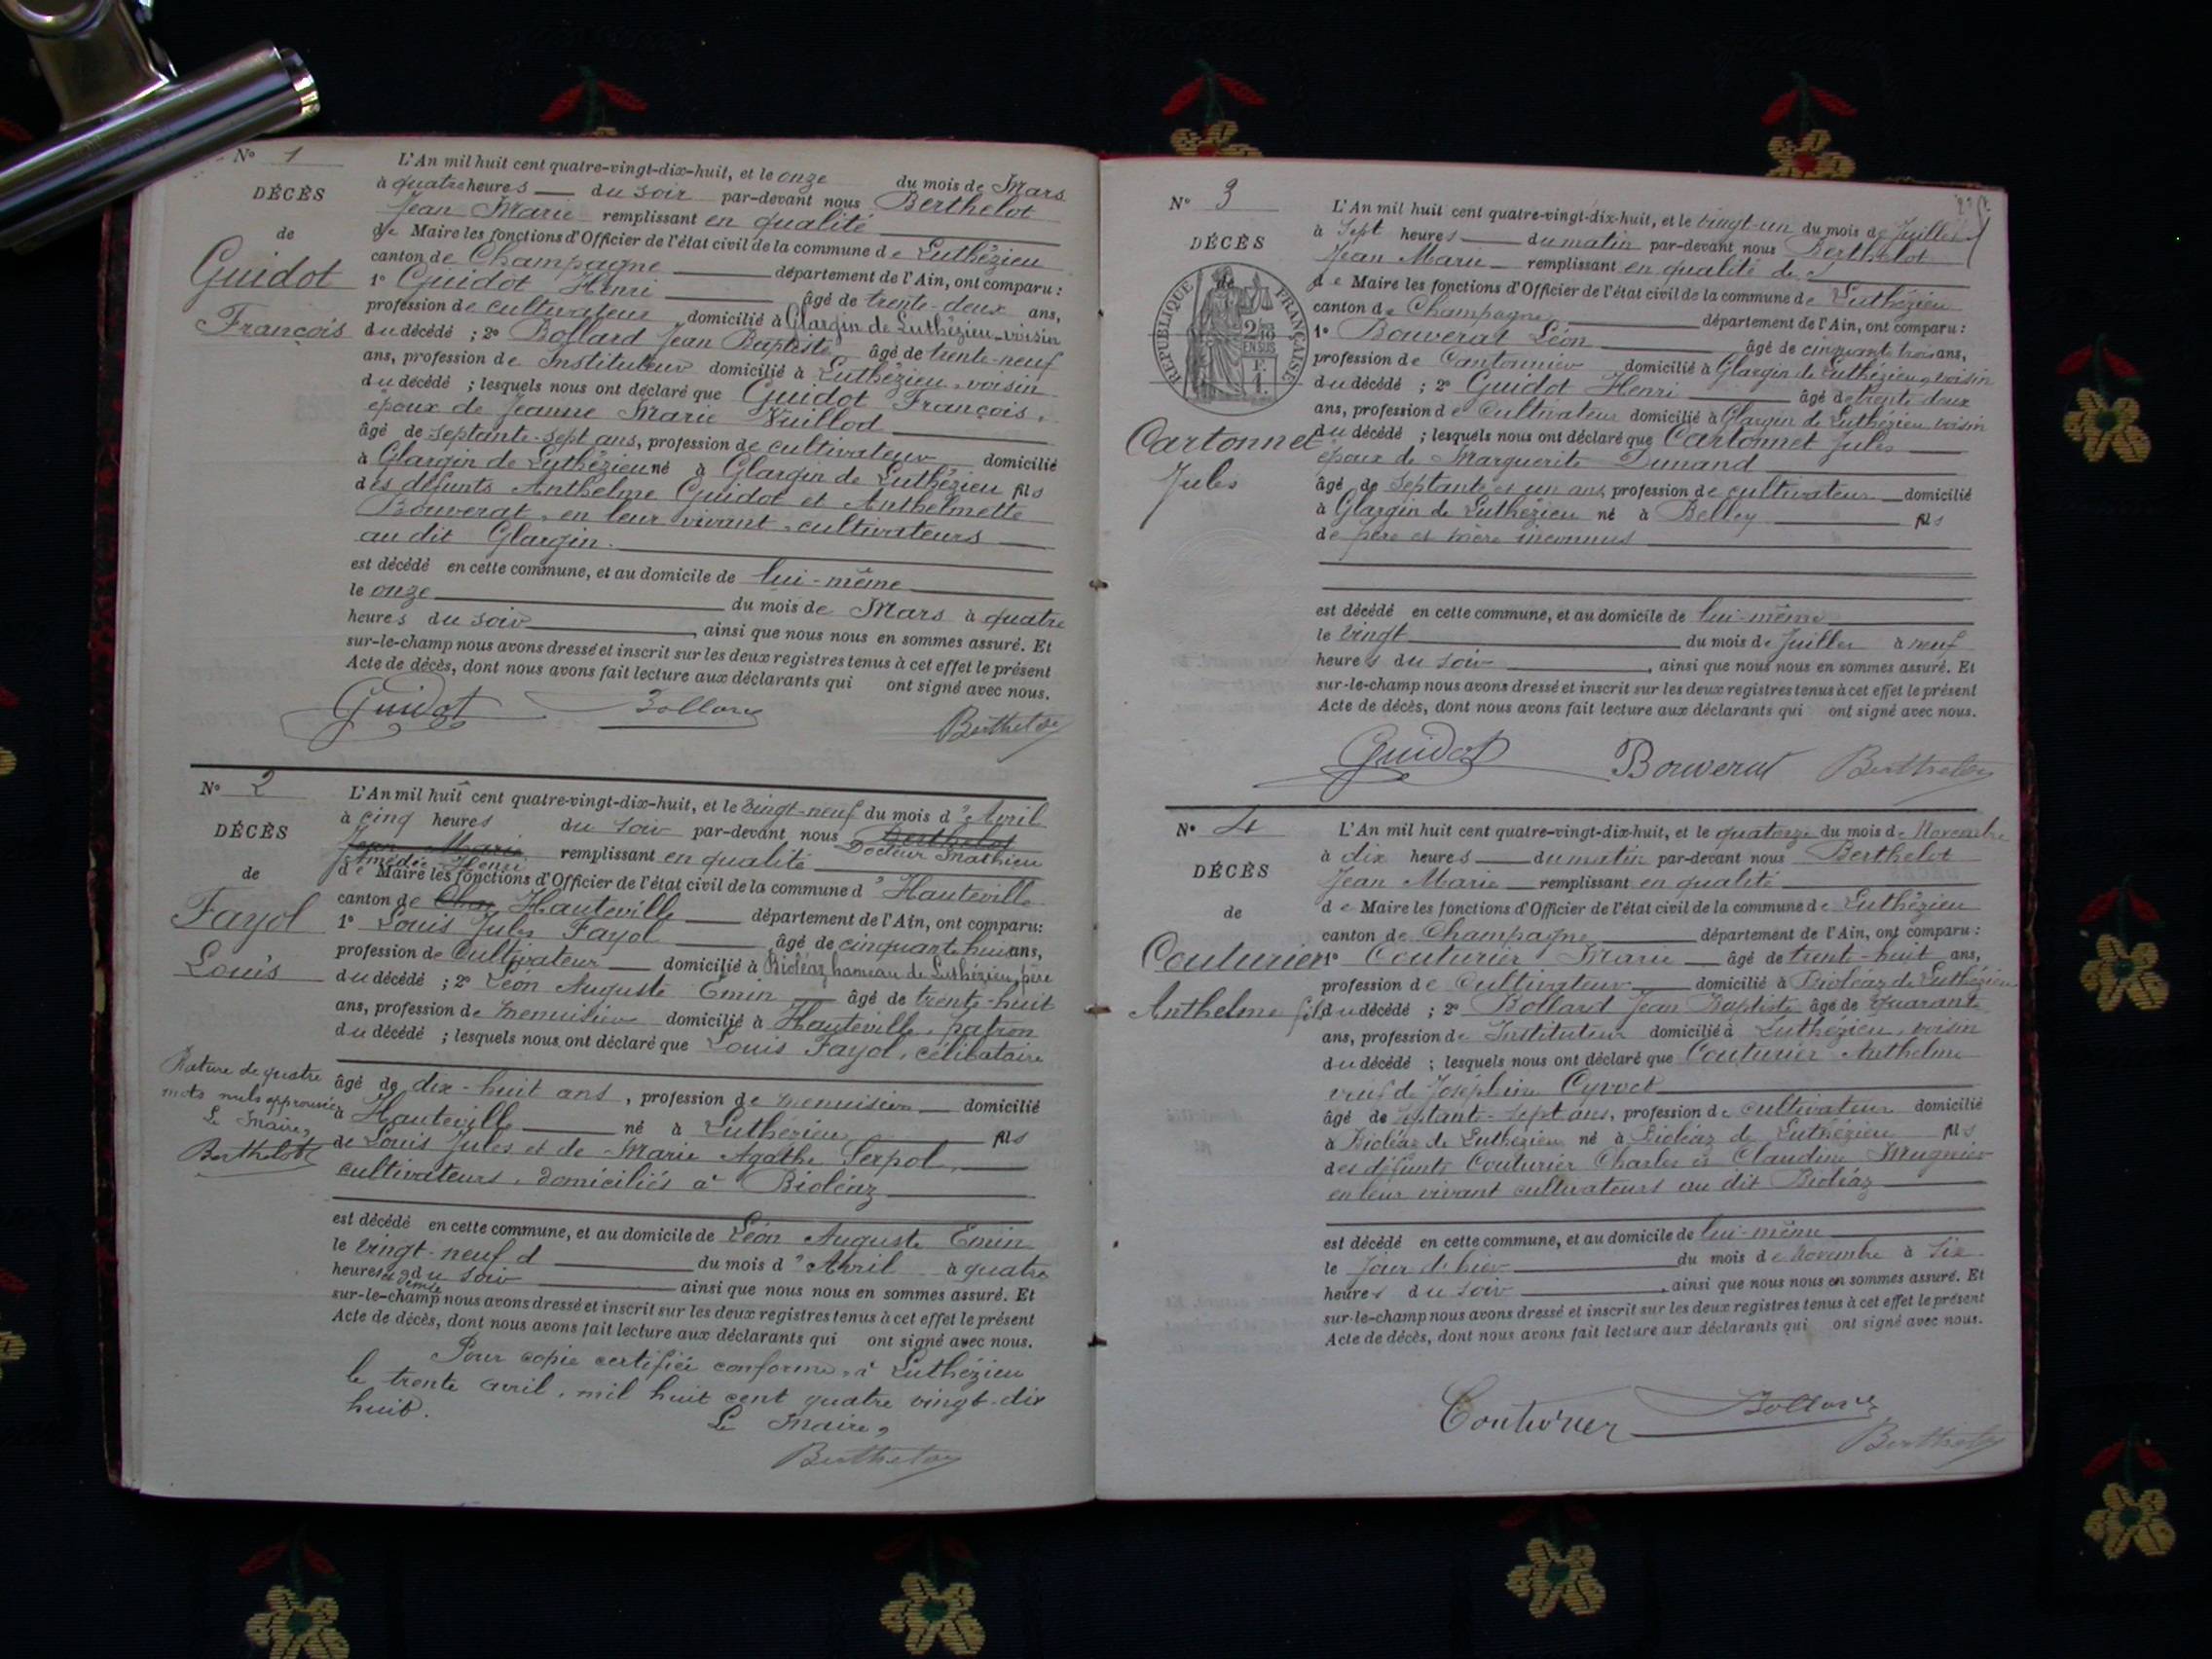 N° 1
DÉCÈS
de
Guidot
François
L'An mil huit cent quatre-vingt-dix-huit, et le onze du mois de Mars
à quatre heures du soir par-devant nous Berthelot
Jean Marie remplissant en qualité
de Maire les fonctions d'Officier de l'état civil de la commune de Luthézieu
canton de Champagne département de l'Ain, ont comparu :
1° Guidot Henri âgé de trente-deux ans,
profession de cultivateur domicilié à Glargin de Luthézieu, voisin
du décédé ; 2° Bollard Jean Baptiste âgé de trente-neuf
ans, profession de Instituteur domicilié à Luthézieu, voisin
du décédé ; lesquels nous ont déclaré que Guidot François,
époux de Jeanne Marie Vuillod
âgé de septante-sept ans, profession de cultivateur domicilié
à Glargin de Luthézieu né à Glargin de Luthézieu fils
des défunts Anthelme Guidot et Anthelmette
Bouverat, en leur vivant, cultivateurs
au dit Glargin.
est décédé en cette commune, et au domicile de lui-même
le onze du mois de Mars à quatre
heures du soir, ainsi que nous nous en sommes assuré. Et
sur-le-champ nous avons dressé et inscrit sur les deux registres tenus à cet effet le présent
Acte de décès, dont nous avons fait lecture aux déclarants qui ont signé avec nous.
Guidot Bollard Berthelot
N° 2
DÉCÈS
de
Fayol
Louis
L'An mil huit cent quatre-vingt-dix-huit, et le vingt-neuf du mois d'Avril
à cinq heures du soir par-devant nous Berthelot
Docteur Mathieu
Jean Marie remplissant en qualité
Amédée Henri
de Maire les fonctions d'Officier de l'état civil de la commune d'Hauteville
canton de Cham Hauteville département de l'Ain, ont comparu :
1° Louis Jules Fayol âgé de cinquante huit ans,
profession de Cultivateur domicilié à Bioléaz hameau de Luthézieu, père
du décédé ; 2° Léon Auguste Emin âgé de trente-huit
ans, profession de menuisier domicilié à Hauteville, patron
du décédé ; lesquels nous ont déclaré que Louis Fayol, célibataire
âgé de dix-huit ans, profession de menuisier domicilié
à Hauteville né à Luthézieu fils
de Louis Jules et de Marie Agathe Serpol,
cultivateurs, domiciliés à Bioléaz
Rature de quatre
mots nuls approuvée
Le Maire,
Berthelot
est décédé en cette commune, et au domicile de Léon Auguste Emin
le vingt-neuf d du mois d'Avril à quatre
heures et demie du soir ainsi que nous nous en sommes assuré. Et
sur-le-champ nous avons dressé et inscrit sur les deux registres tenus à cet effet le présent
Acte de décès, dont nous avons fait lecture aux déclarants qui ont signé avec nous.
Pour copie certifiée conforme, à Luthézieu
le trente avril, mil huit cent quatre vingt-dix
huit.
Le Maire,
Berthelot
N° 3
DÉCÈS
de
RÉPUBLIQUE FRANÇAISE
EN SUS
Cartonnet
Jules
L'An mil huit cent quatre-vingt-dix-huit, et le vingt-un du mois de Juillet
à Sept heures du matin par-devant nous Berthelot
Jean Marie remplissant en qualité de
de Maire les fonctions d'Officier de l'état civil de la commune de Luthézieu
canton de Champagne département de l'Ain, ont comparu :
1° Bouverat Léon âgé de cinquante trois ans,
profession de Cantonnier domicilié à Glargin de Luthézieu, voisin
du décédé ; 2° Guidot Henri âgé de trente deux
ans, profession de Cultivateur domicilié à Glargin de Luthézieu voisin
du décédé ; lesquels nous ont déclaré que Cartonnet Jules
époux de Marguerite Dunand
âgé de Septante et un ans, profession de cultivateur domicilié
à Glargin de Luthézieu né à Belley fils
de père et mère inconnus
est décédé en cette commune, et au domicile de lui-même
le vingt du mois de Juillet à neuf
heures du soir, ainsi que nous nous en sommes assuré. Et
sur-le-champ nous avons dressé et inscrit sur les deux registres tenus à cet effet le présent
Acte de décès, dont nous avons fait lecture aux déclarants qui ont signé avec nous.
Guidot Bouverat Berthelot
N° 4
DÉCÈS
de
Couturier
Anthelme
L'An mil huit cent quatre-vingt-dix-huit, et le quatorze du mois de Novembre
à dix heures du matin par-devant nous Berthelot
Jean Marie remplissant en qualité
de Maire les fonctions d'Officier de l'état civil de la commune de Luthézieu
canton de Champagne département de l'Ain, ont comparu :
1° Couturier Marie âgé de trente-huit ans,
profession de Cultivateur domicilié à Bioléaz de Luthézieu
fils du décédé ; 2° Bollard Jean Baptiste âgé de quarante
ans, profession de Instituteur domicilié à Luthézieu, voisin
du décédé ; lesquels nous ont déclaré que Couturier Anthelme
veuf de Joséphine Cyvoct
âgé de septante-sept ans, profession de cultivateur domicilié
à Bioléaz de Luthézieu né à Bioléaz de Luthézieu fils
des défunts Couturier Charles et Claudine Mugnier
en leur vivant cultivateurs au dit Bioléaz
est décédé en cette commune, et au domicile de lui-même
le jour d'hier du mois de Novembre à six
heures du soir, ainsi que nous nous en sommes assuré. Et
sur-le-champ nous avons dressé et inscrit sur les deux registres tenus à cet effet le présent
Acte de décès, dont nous avons fait lecture aux déclarants qui ont signé avec nous.
Couturier Bollard Berthelot